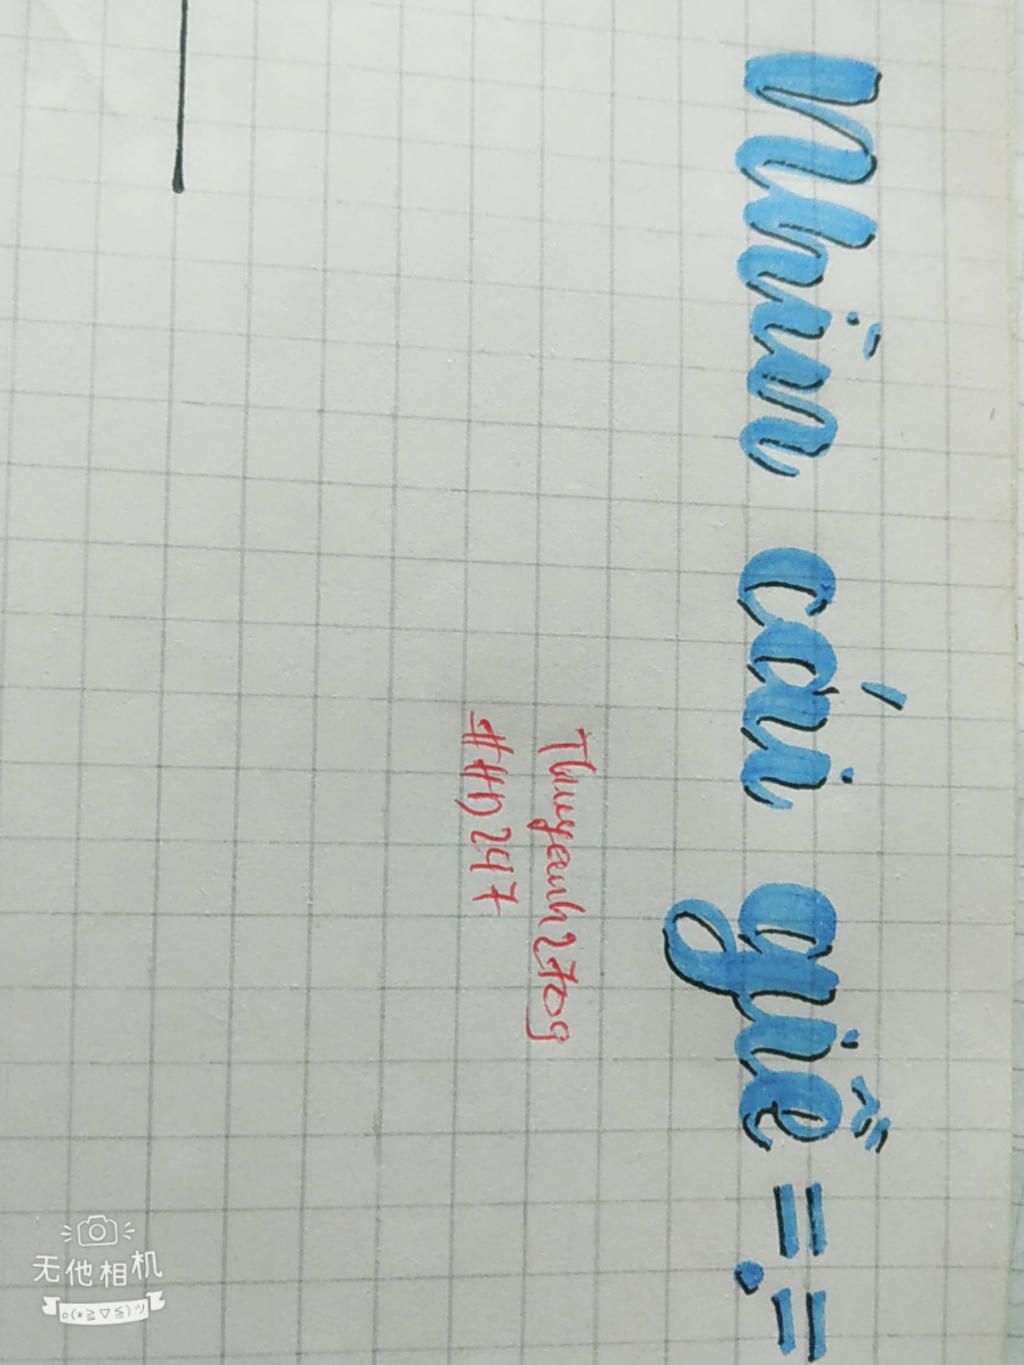 Nhìn cái giề =.=
Thuyanh2709
#HD247
无他相机
o(*≧▽≦)ツ